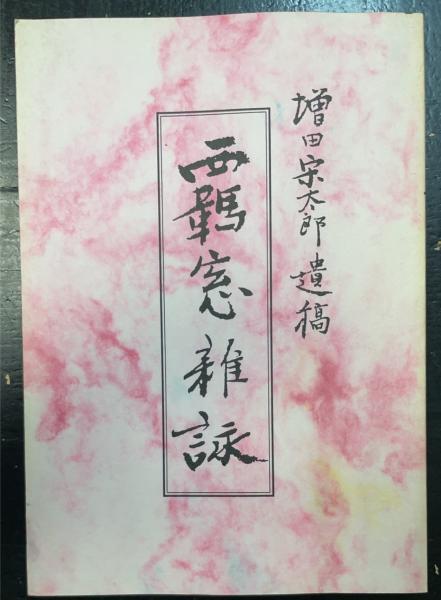 増田宋太郎遺稿
覊窓雑詠